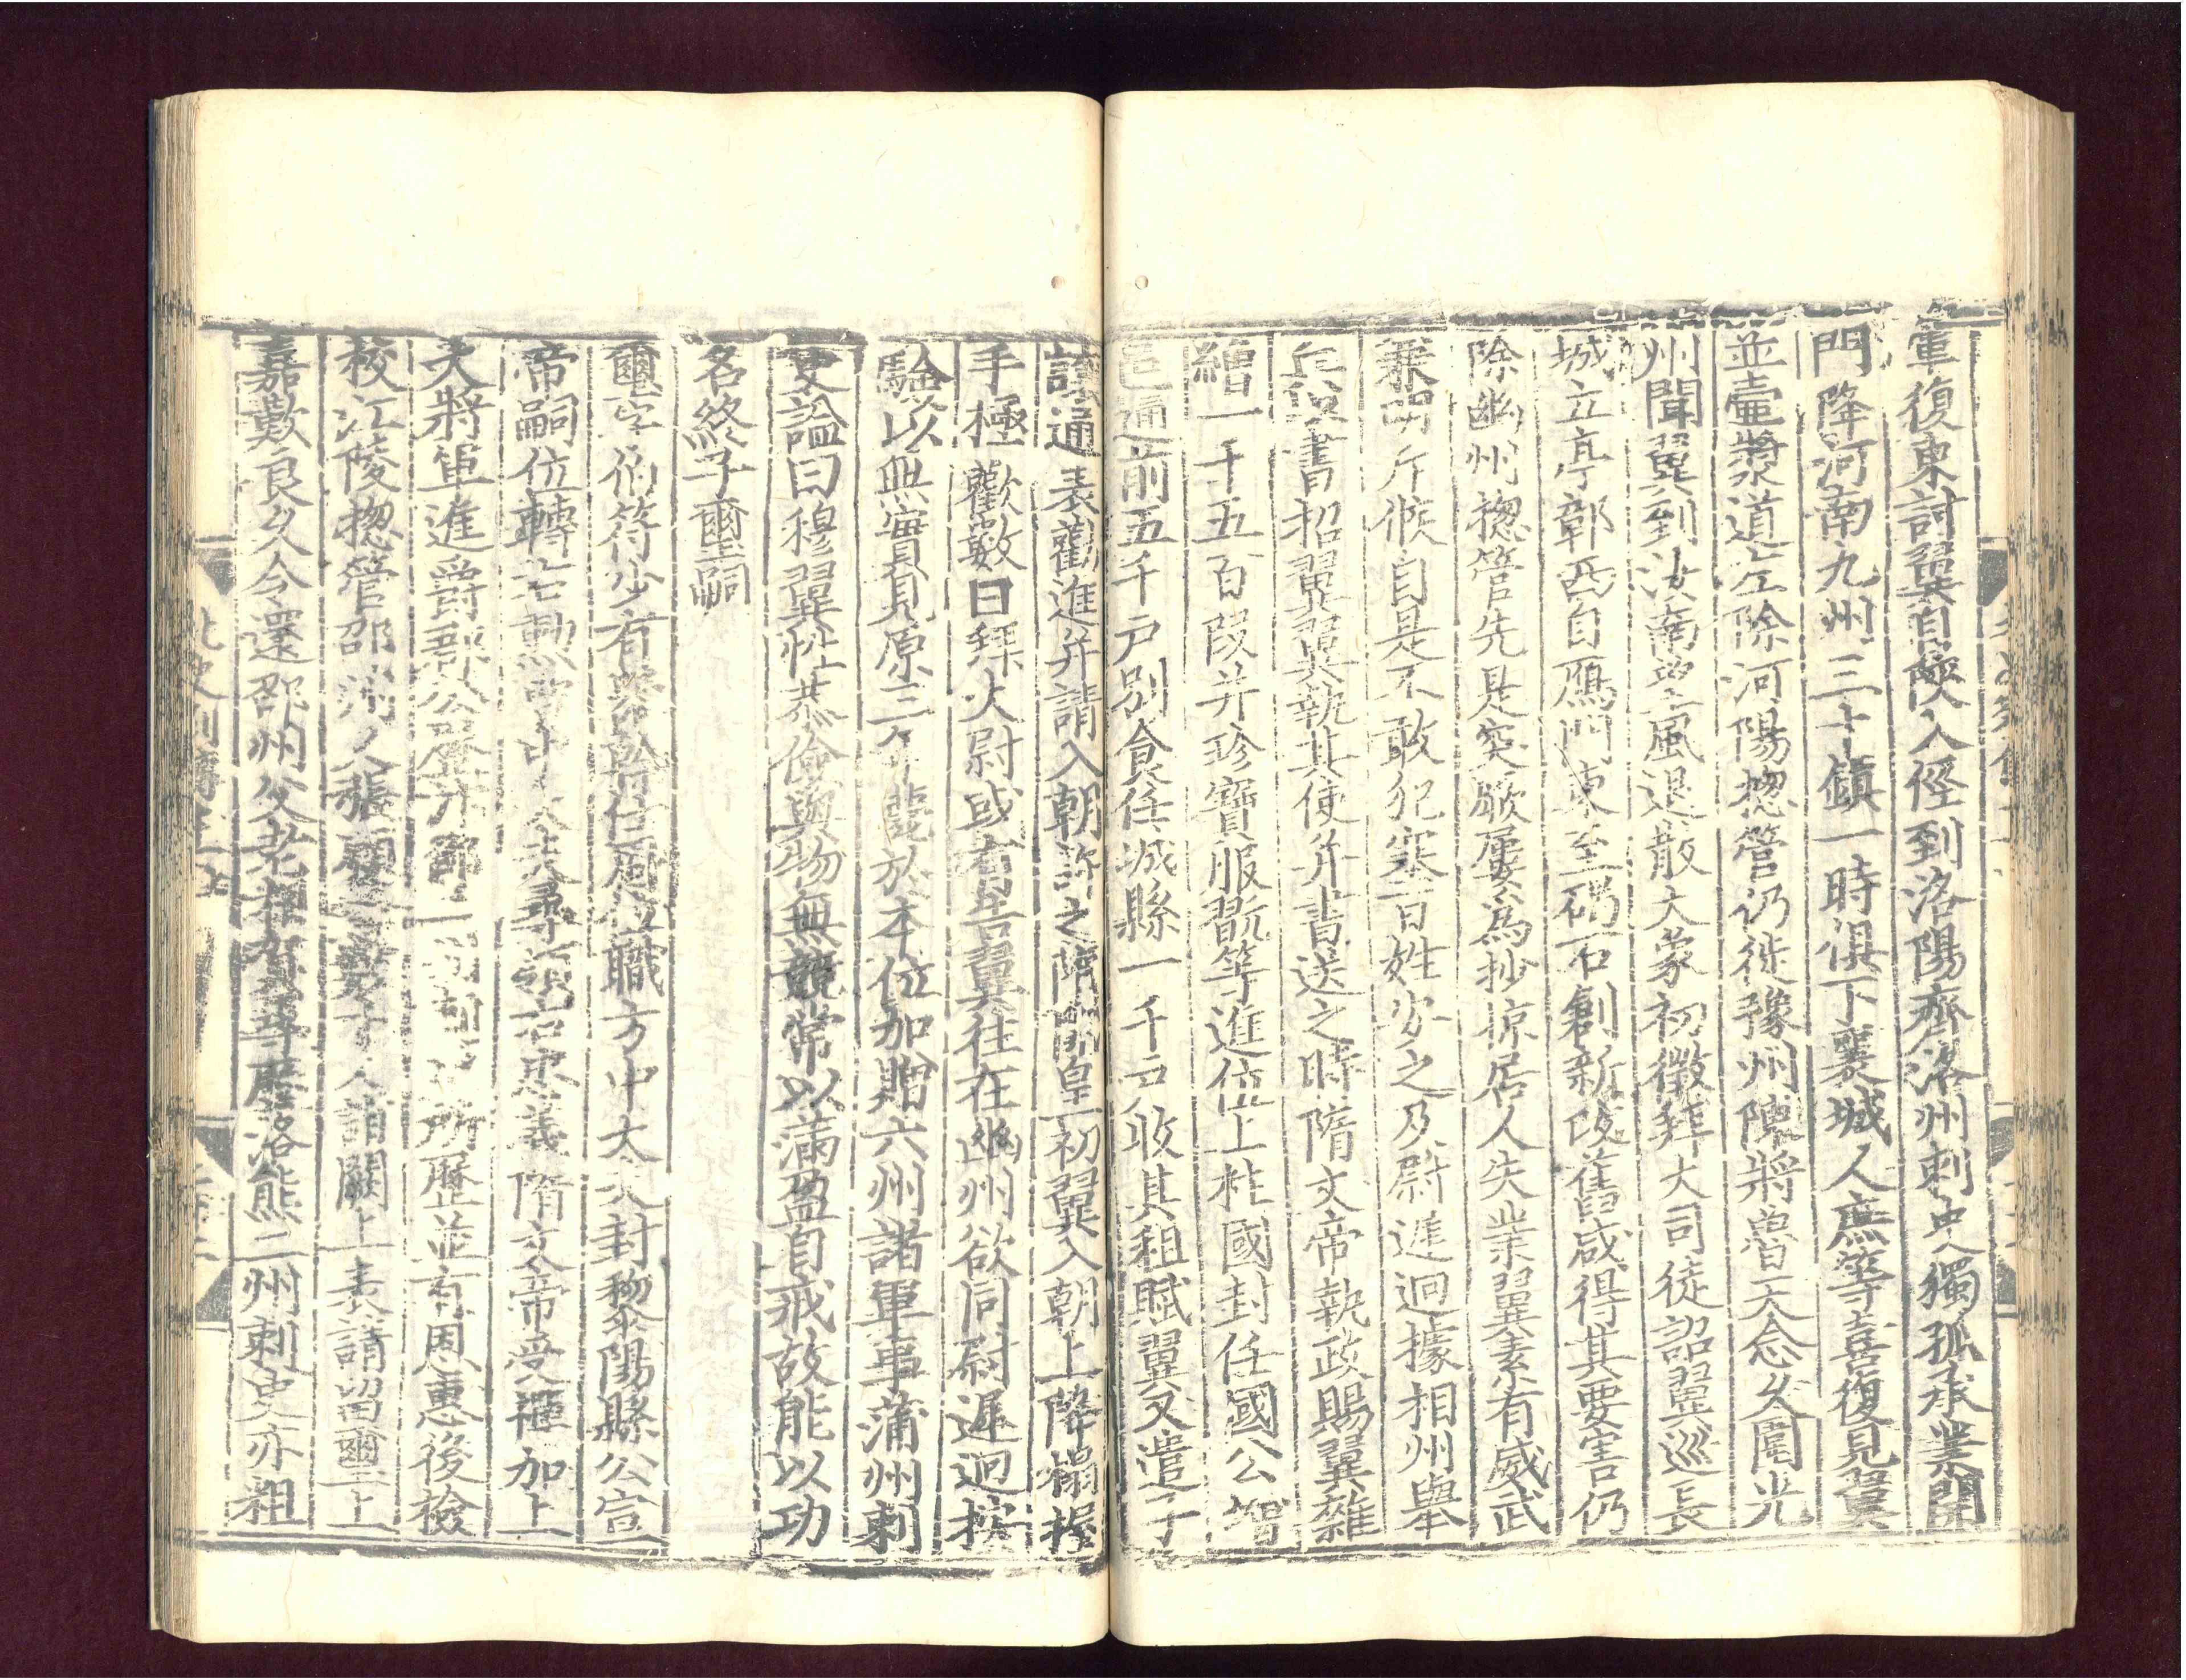 軍復東討翼自陝入徑到洛陽齊洛州刺史獨孤永業開
門降河南九州三十鎮一時俱下襄城人庶等喜復見翼
並壷漿道左除河陽揔管仍徙豫州陳將魯天念久圍光
州聞翼到汝南望風退散大象初徵拜大司徒詔翼巡長
城立亭鄣西自鴈門東至碣石創新改舊咸得其要害仍
除幽州揔管先是突厥屢爲抄掠居人失業翼素有威武
兼明斥候自是不敢犯塞百姓安之及尉遲迥據相州舉
兵以書招翼翼執其使并書送之時隋文帝執政賜翼雜
繒一千五百段并珍寶服翫等進位上柱國封任國公增
邑通前五千戸別食任城縣一千戸收其租賦翼又遣子
讓通表勸進并請入朝許之隋開皇初翼入朝上降榻握
手極歡數日拜太尉或有告翼往在幽州欲同尉遲迥按
驗以無實見原三年薨於本位加贈六州諸軍事蒲州刺
史諡曰穆翼性恭儉與物無競常以滿盈自戒故能以功
名終子璽嗣
璽字伯符少有器幹仕周位職方中大夫封黎陽縣公宣
帝嗣位轉右勲曹中大夫尋領右忠義隋文帝受禪加上
大將軍進爵郡公歷汴邵二州刺史所歷並有恩惠後檢
校江陵揔管邵州人張願等數十人詣闕上表請留璽上
嘉歎良久令還邵州父老相賀尋歷洛熊二州刺史亦粗
北史列傳